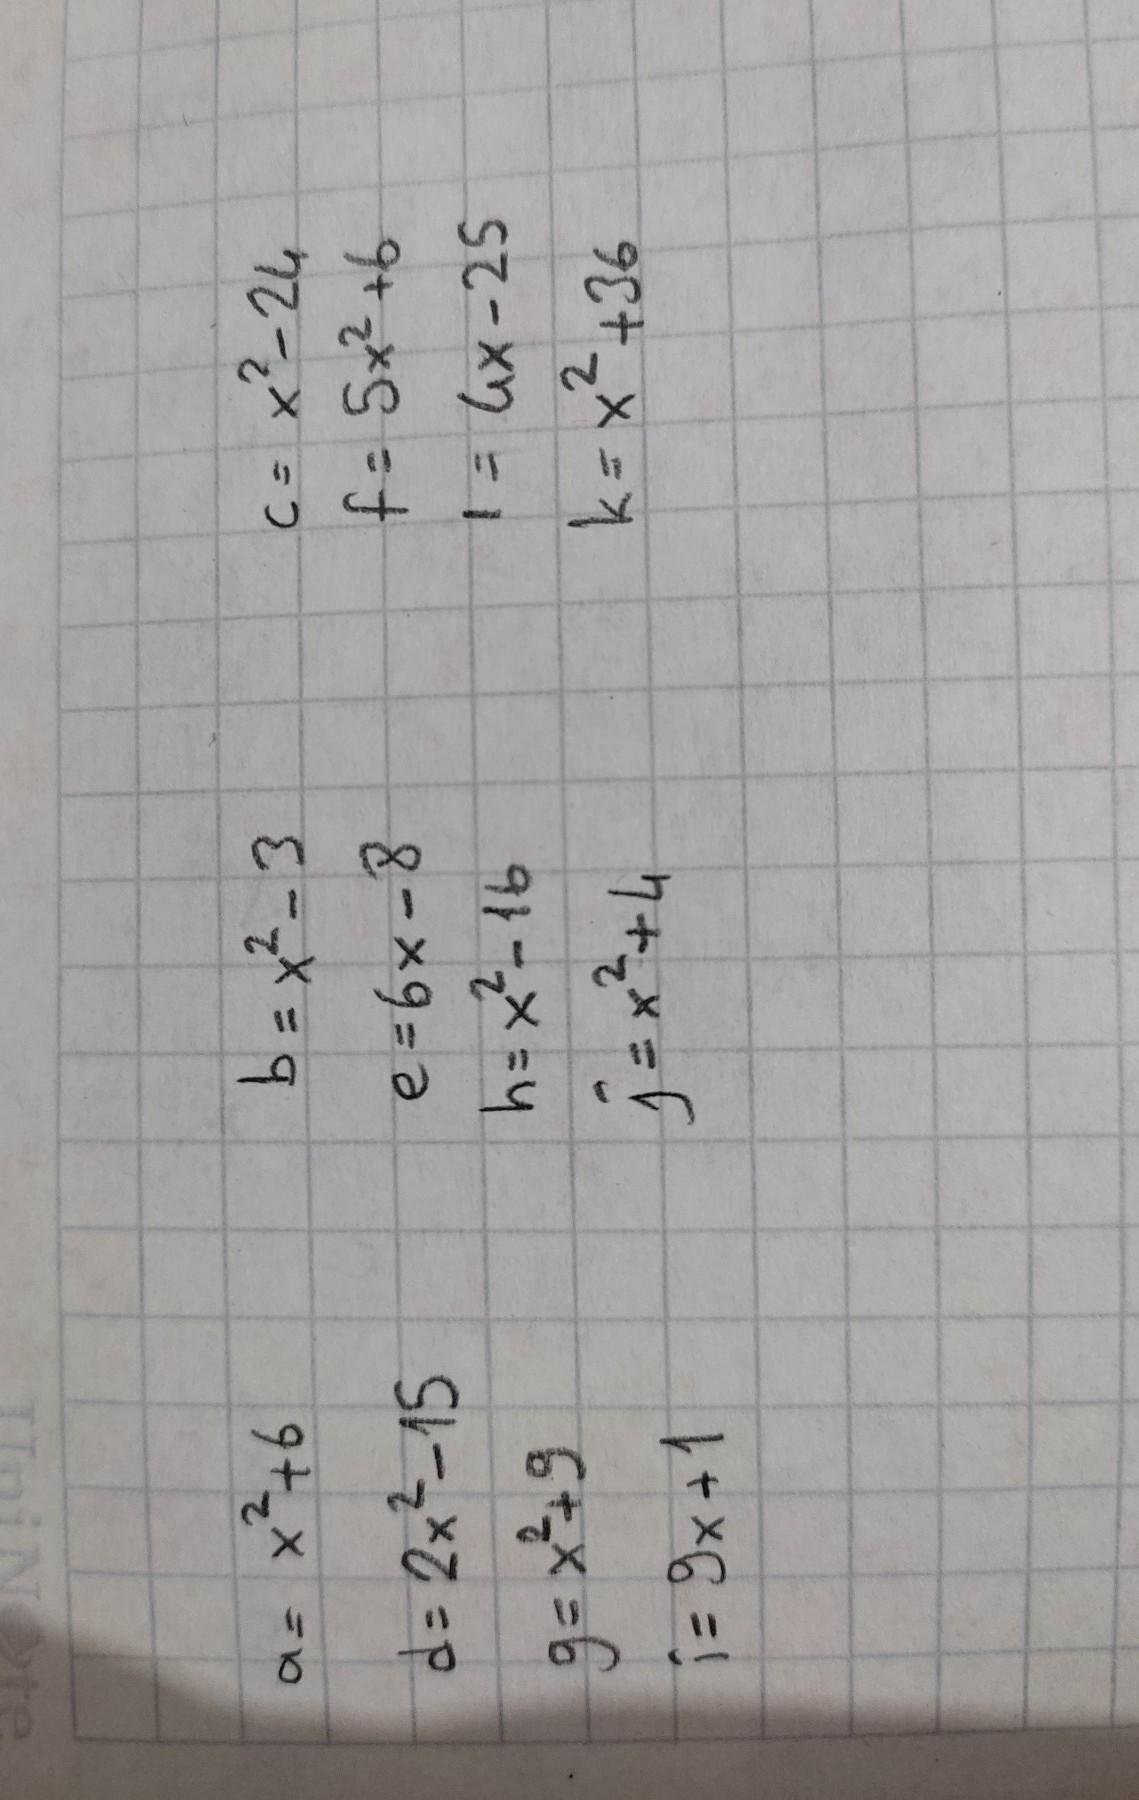 a = x²+6 b = x²-3 c = x²-24
d = 2x²-15 e = 6x-8 f = 5x²+6
g = x²+9 h = x²-16 l = 4x-25
i = 9x+1 j = x²+4 k = x²+36